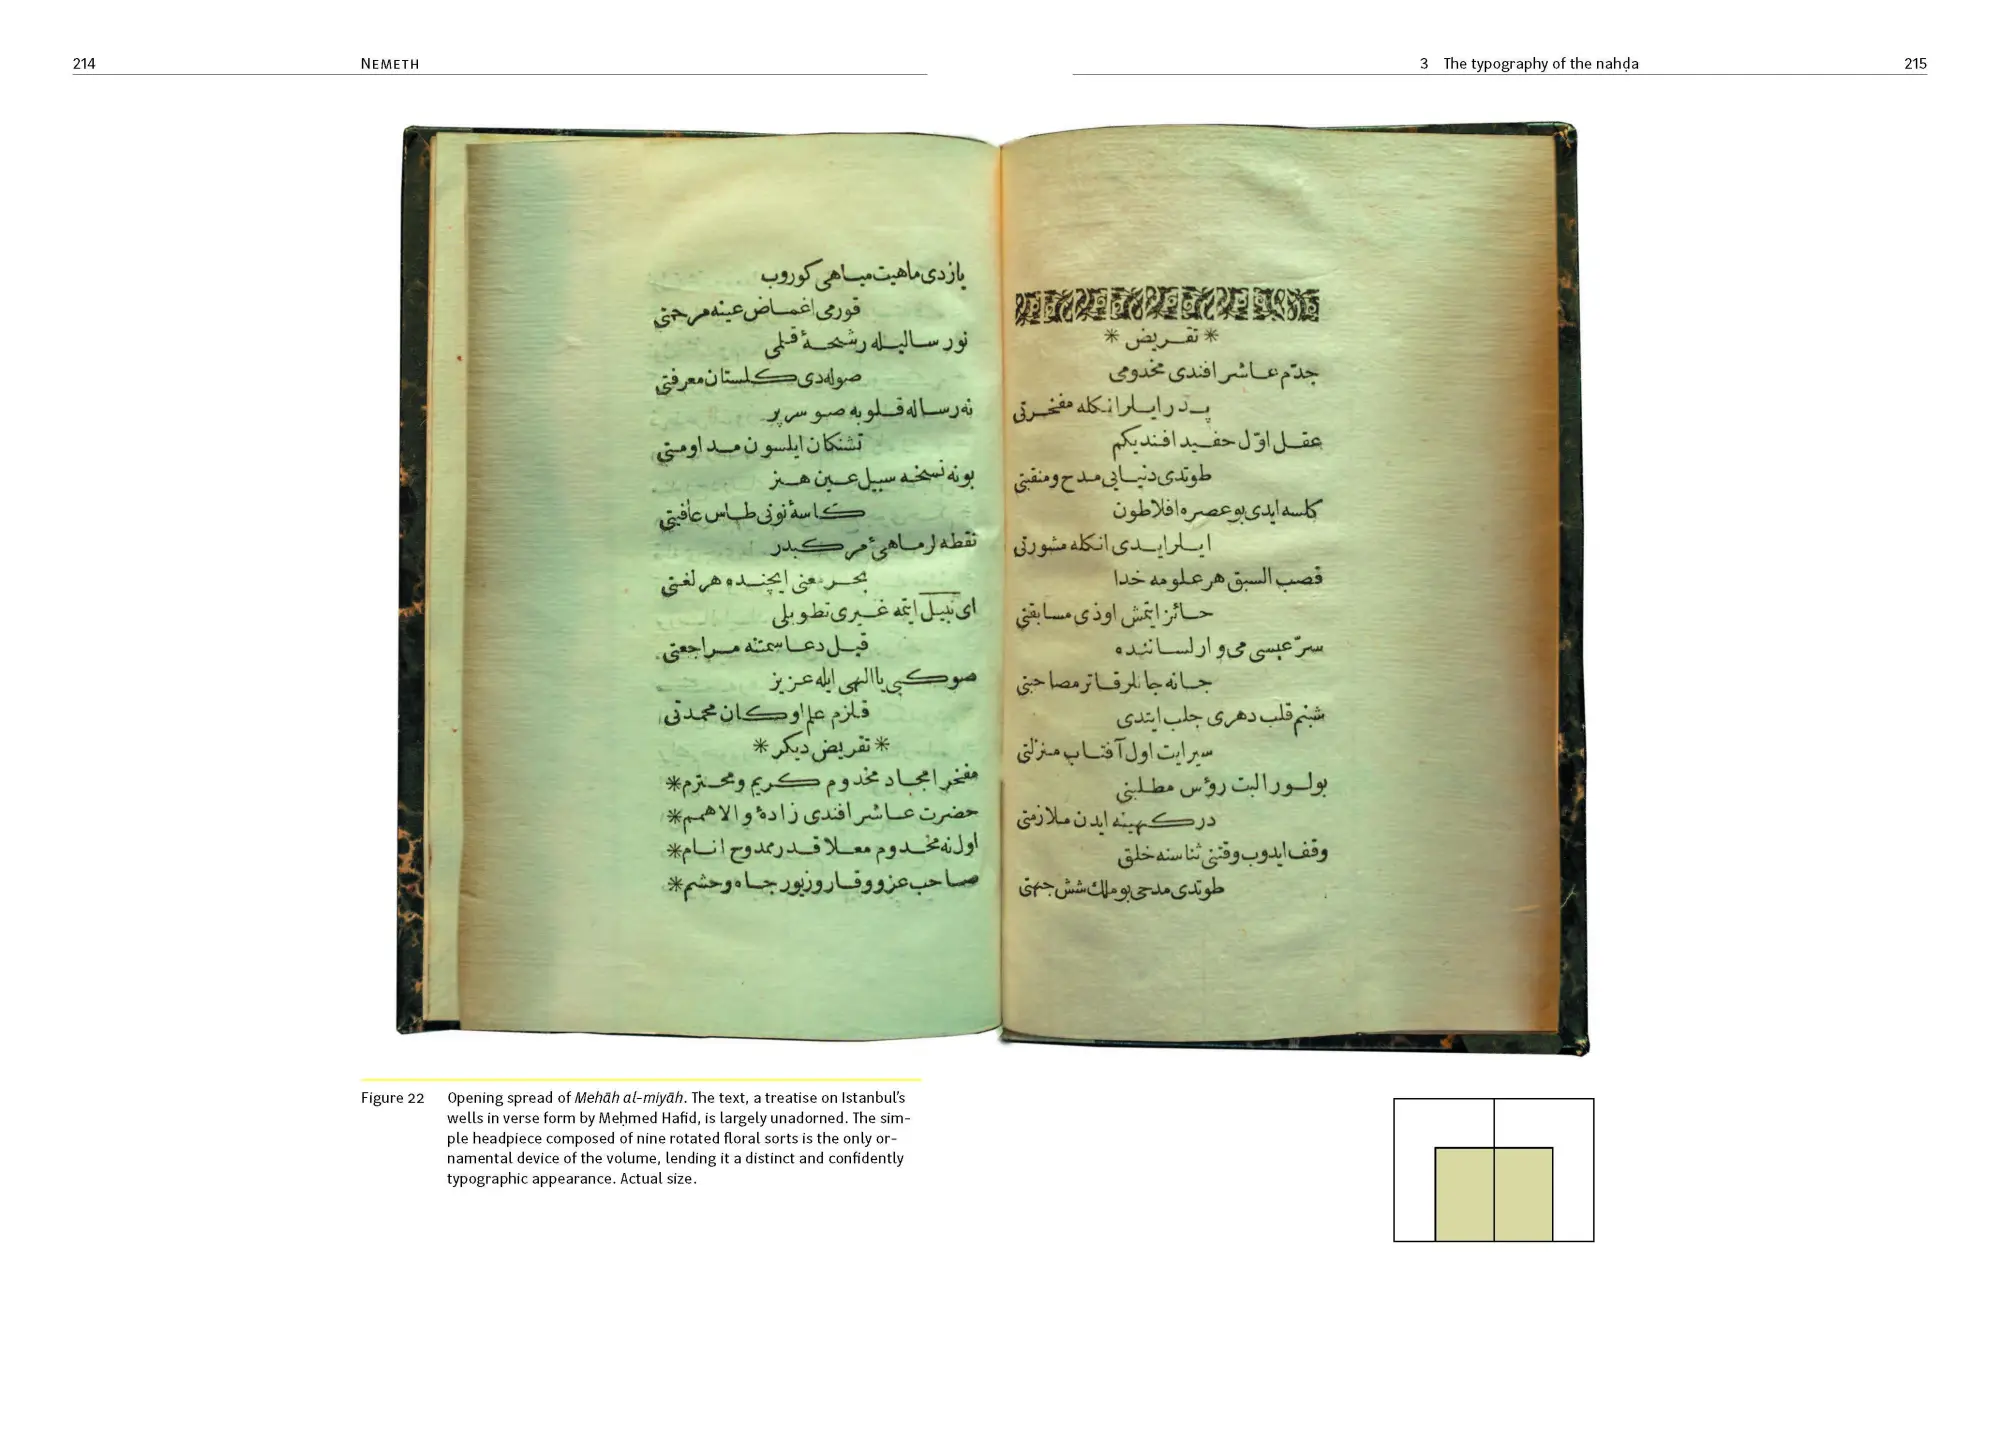 214 NEMETH
3 The typography of the nahḍa 215
* تقريض *
جدّم عاشر افندى مخدومى
پدر ايلر انكله مفخرتى
عقل اوّل حفيد افنديكم
طوتدى دنيايى مدح ومنقبتى
كلسه ايدى بو عصره افلاطون
ايلر ايدى انكله مشورتى
قصب السبق هر علومه خدا
حائز ايتمش اوذى مسابقتى
سرّ عيسى مى وار لساننده
جانه جانلر قاتر مصاحبتى
شبنم قلب دهرى جلب ايتدى
سير ايت اول آفتاب منزلتى
بولور البت رؤس مطلبنى
دركهينه ايدن ملازمتى
وقف ايدوب وقتنى ثناسنه خلق
طوتدى مدحى بو ملك شش جهتى
يازدى ماهيت مياهى كوروب
قورمى اغماض عينه مرحمتى
نور ساليله رشحهٔ قلمى
صولەدى كلستان معرفتى
نه رساله قلوبه صو سرپر
تشنكان ايلسون مداومتى
بو نه نسخه سبيل عين هنر
كاسهٔ نونى طاس عافيتى
نقطه لر ماهئ مركبدر
بحر معنى ايچنده هر لغتى
اى نبيل ايتمه غيرى تطويلى
قيل دعا سمتنه مراجعتى
صو كبى ياالهى ايله عزيز
قلزم علم اوكان محمدتى
* تقريض ديكر *
مفخر امجاد مخدوم كريم ومحترم *
حضرت عاشر افندى زادهٔ والاهمم *
اولنه مخدوم معلا قدر ممدوح انام *
صاحب عز ووقار وزيور جاه وحشم *
Figure 22 Opening spread of Mehāh al-miyāh. The text, a treatise on Istanbul’s
wells in verse form by Meḥmed Hafid, is largely unadorned. The sim-
ple headpiece composed of nine rotated floral sorts is the only or-
namental device of the volume, lending it a distinct and confidently
typographic appearance. Actual size.